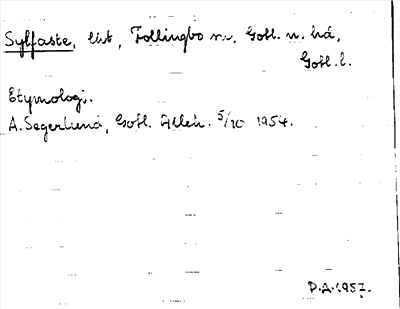 Sylfaste, eht, Follingbo sn, Gotl. n. hd,
Gotl. l.
Etymologi.
A. Segerlund, Gotl. Alleh. 5/10 1954.
D.A. 1957.